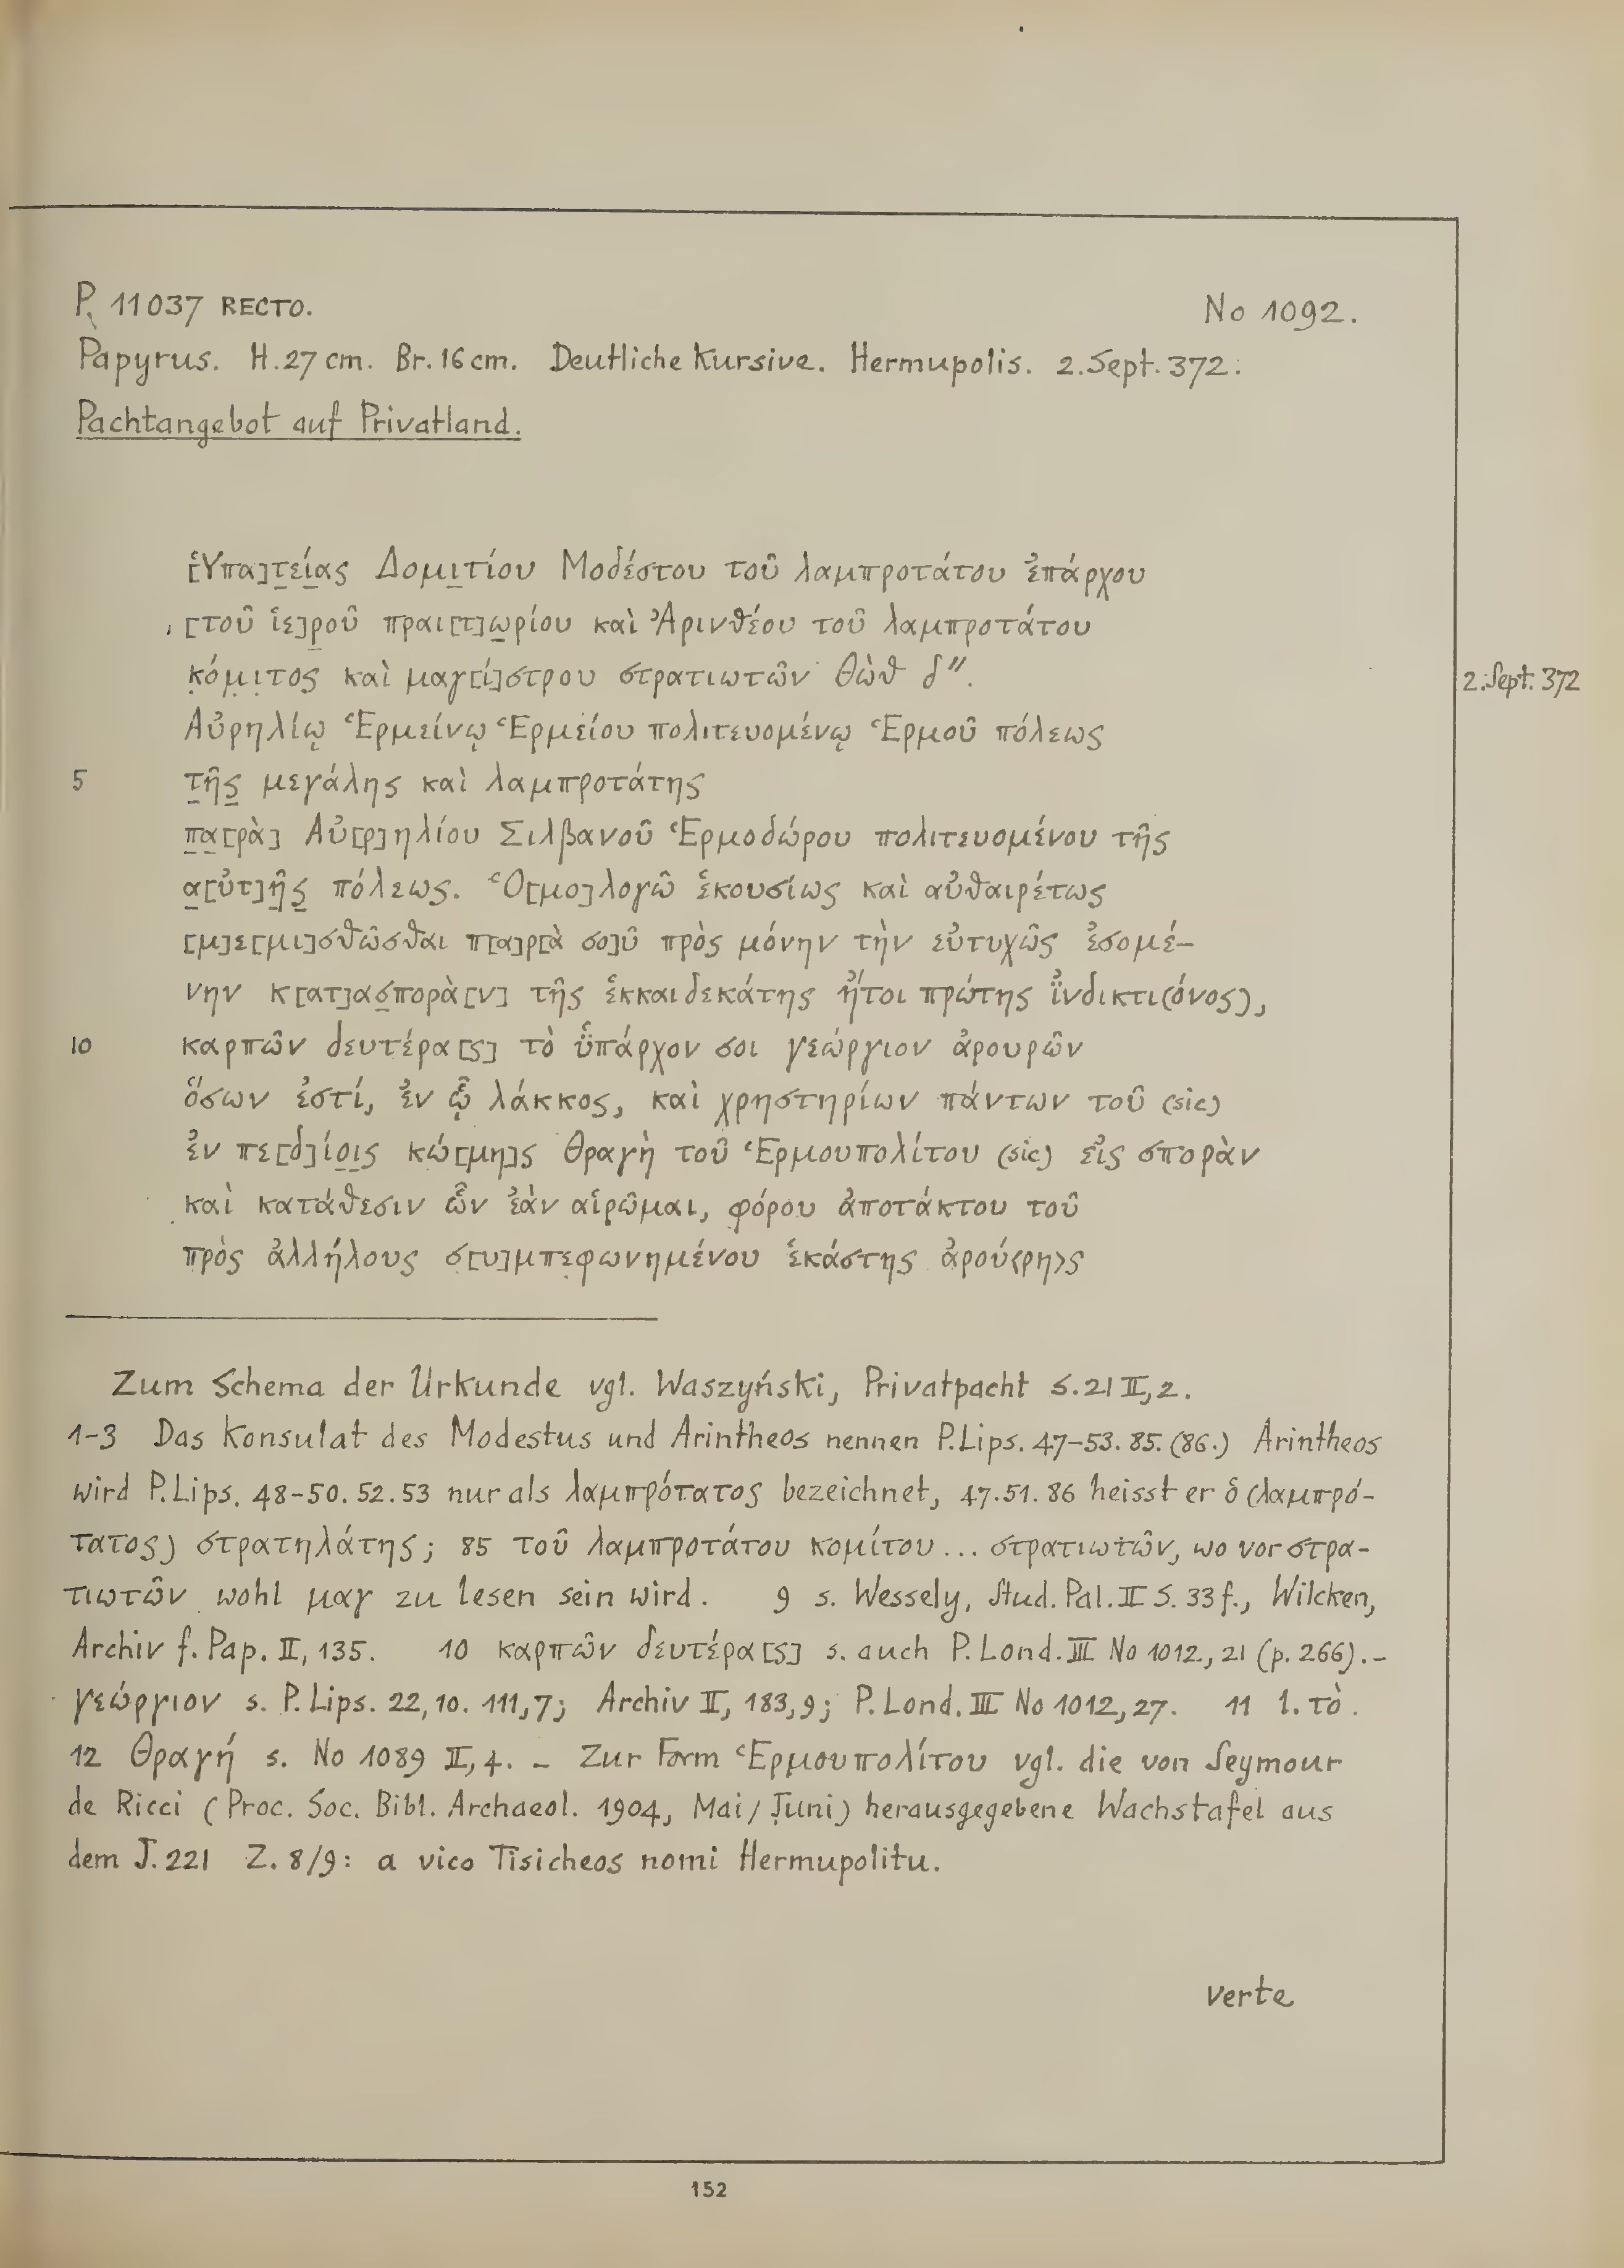 P. 11037 RECTO. No 1092.
Papyrus. H. 27 cm. Br. 16 cm. Deutliche Kursive. Hermupolis. 2. Sept. 372.
Pachtangebot auf Privatland.
[Ὑπα]τ̣ε̣ί̣ας Δομι̣τίου Μοδέστου τοῦ λαμπροτάτου ἐπάρχου
[τοῦ ἱε]ρ̣οῦ πραι[τ]ω̣ρίου καὶ Ἀρινθέου τοῦ λαμπροτάτου
κ̣όμ̣ι̣τος καὶ μαγ[ί]στρου στρατιωτῶν Θὼθ δ″. 2. Sept. 372
Αὐρηλίῳ Ἑρμείνῳ Ἑρμείου πολιτευομένῳ Ἑρμοῦ πόλεως
5 τ̣ῆς̣ μεγάλης καὶ λαμπροτάτης
π̣α̣[ρὰ] Αὐ[ρ]ηλίου Σιλβανοῦ Ἑρμοδώρου πολιτευομένου τῆς
α̣[ὐτ]ῆ̣ς̣ πόλεως. Ὁ[μο]λογῶ ἑκουσίως καὶ αὐθαιρέτως
[μ]ε[μι]σθῶσθαι π[α]ρ[ὰ σο]ῦ πρὸς μόνην τὴν εὐτυχῶς ἐσομέ-
νην κ[ατ]ασ̣πορὰ[ν] τῆς ἑκκαιδεκάτης ἤτοι πρώτης ἰ̈νδικτι(όνος),
10 καρπῶν δευτέρα[ς] τὸ ὑ̈πάρχον σοι γεώργιον ἀρουρῶν
ὅσων ἐστί, ἐν ᾧ λάκκος, καὶ χρηστηρίων πάντων τοῦ (sic)
ἐν πε[δ]ίο̣ι̣ς κώ[μη]ς Θραγὴ τοῦ Ἑρμουπολίτου (sic) εἰς σπορὰν
καὶ κατάθεσιν ὧν ἐὰν αἱρῶμαι, φόρου ἀποτάκτου τοῦ
π̣ρὸς ἀλλήλους σ[υ]μπε̣φωνημένου ἑκάστης ἀρού<ρη>ς
Zum Schema der Urkunde vgl. Waszyński, Privatpacht S. 21 II, 2.
1-3 Das Konsulat des Modestus und Arintheos nennen P. Lips. 47-53. 85. (86.) Arintheos
wird P. Lips. 48-50. 52. 53 nur als λαμπρότατος bezeichnet, 47. 51. 86 heisst er ὁ (λαμπρό-
τατος) στρατηλάτης; 85 τοῦ λαμπροτάτου κομίτου... στρατιωτῶν, wo vor στρα-
τιωτῶν wohl μαγ zu lesen sein wird. 9 s. Wessely, Stud. Pal. II S. 33 f., Wilcken,
Archiv f. Pap. II, 135. 10 καρπῶν δευτέρα[ς] s. auch P. Lond. III No 1012, 21 (p. 266). -
γεώργιον s. P. Lips. 22, 10. 111, 7; Archiv II, 183, 9; P. Lond. III No 1012, 27. 11 l. τὸ.
12 Θραγή s. No 1089 II, 4. - Zur Form Ἑρμουπολίτου vgl. die von Seymour
de Ricci (Proc. Soc. Bibl. Archaeol. 1904, Mai/Juni) herausgegebene Wachstafel aus
dem J. 221 Z. 8/9: a vico Tisicheos nomi Hermupolitu.
verte
152